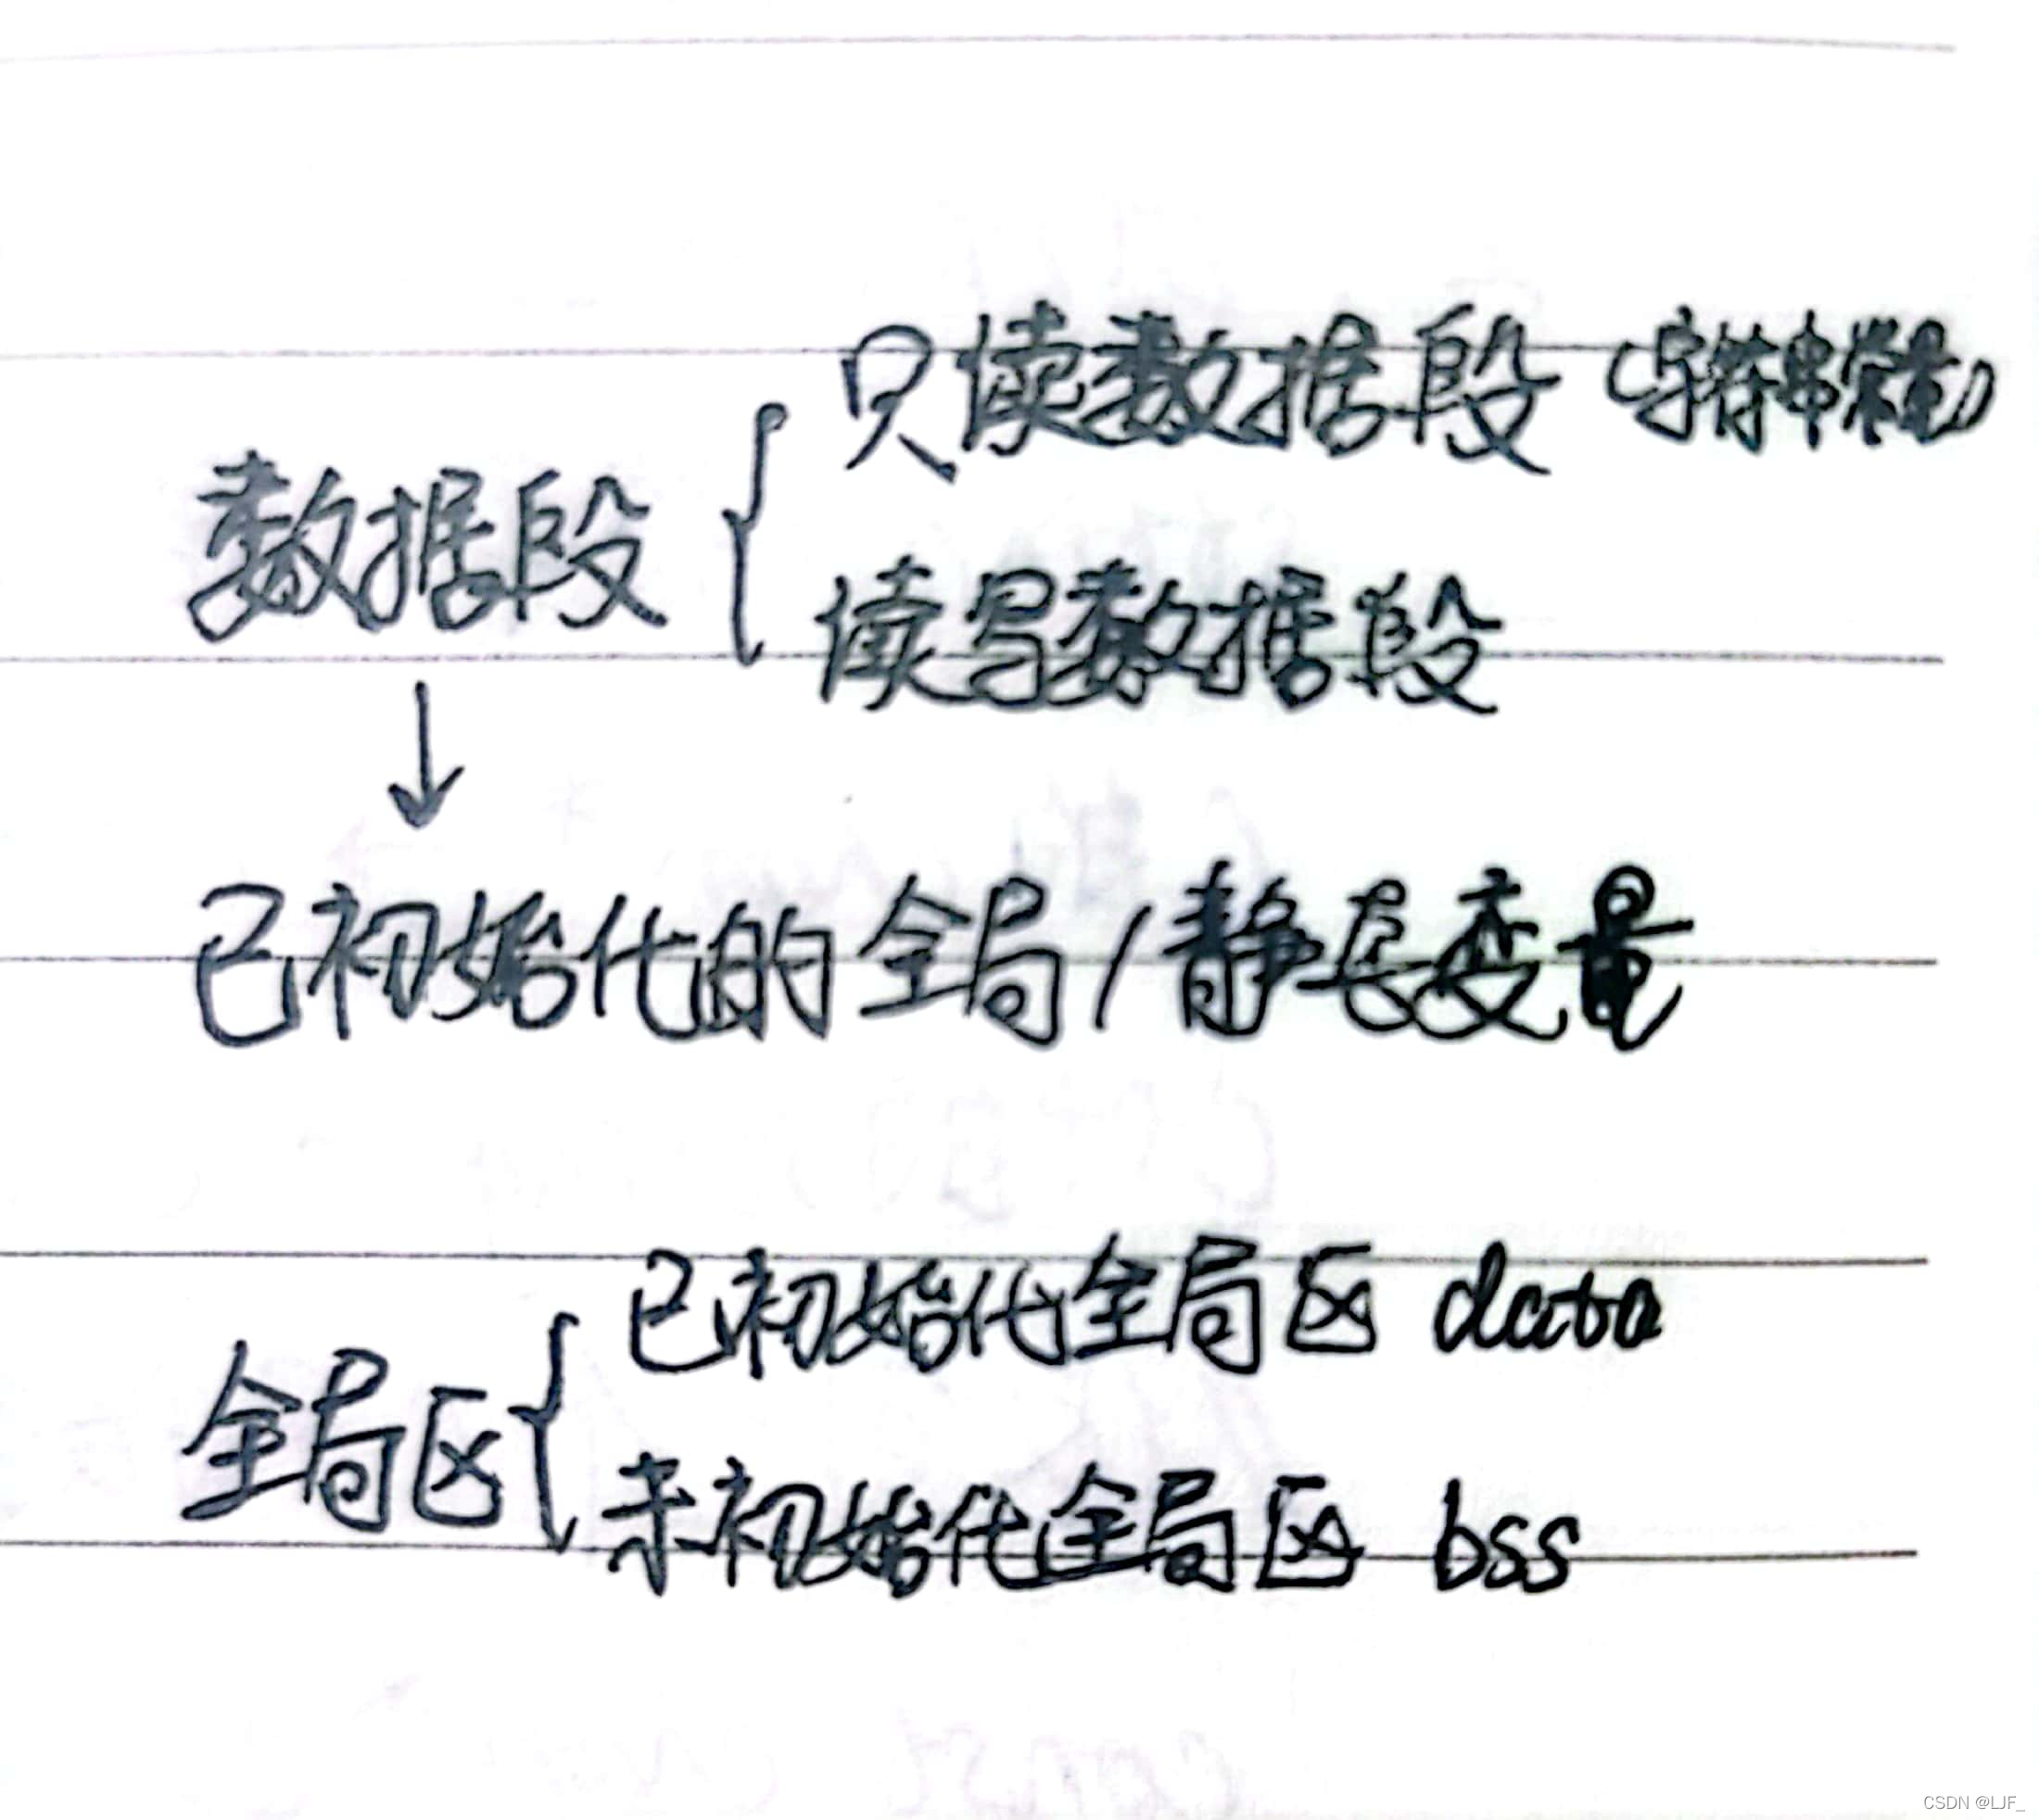 只读数据段（字符串常量）
数据段
读写数据段
已初始化的全局/静态变量
已初始化全局区 data
全局区
未初始化全局区 bss
CSDN @LJF_